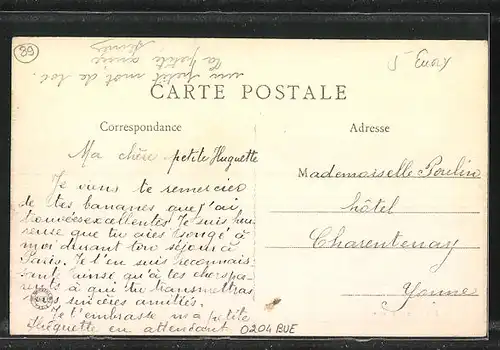 89
un petit mot de toi.
la petite amie
5 Eusy
CARTE POSTALE
Correspondance
Adresse
Ma chère petite Huguette
Je viens te remercier
de tes bananes que j'ai
trouvées excellentes. Je suis heu
reuse que tu aies songé à
moi durant ton séjour à
Paris. Je t'en suis reconnais
sante ainsi qu'à tes chers pa-
rents à qui tu transmettras
mes sincères amitiés.
Je t'embrasse ma petite
Huguette en attendant
Mademoiselle Poulin
hôtel
Charentenay
Yonne
0204 BUE